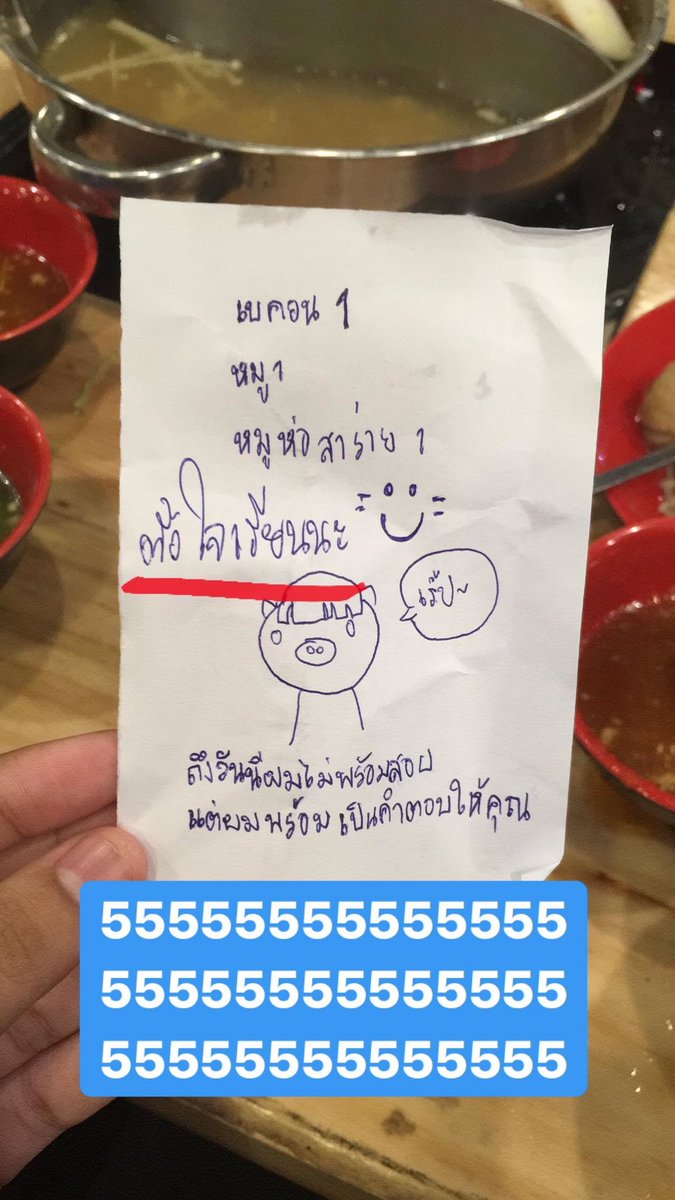 เบคอน 1
หมู 1
หมูห่อสาร่าย 1
ตั้งใจเรียนนะ
เร๊ป~
ถึงวันนี้ผมไม่พร้อมสอบ
แต่ผมพร้อมเป็นคำตอบให้คุณ
555555555555555
555555555555555
555555555555555